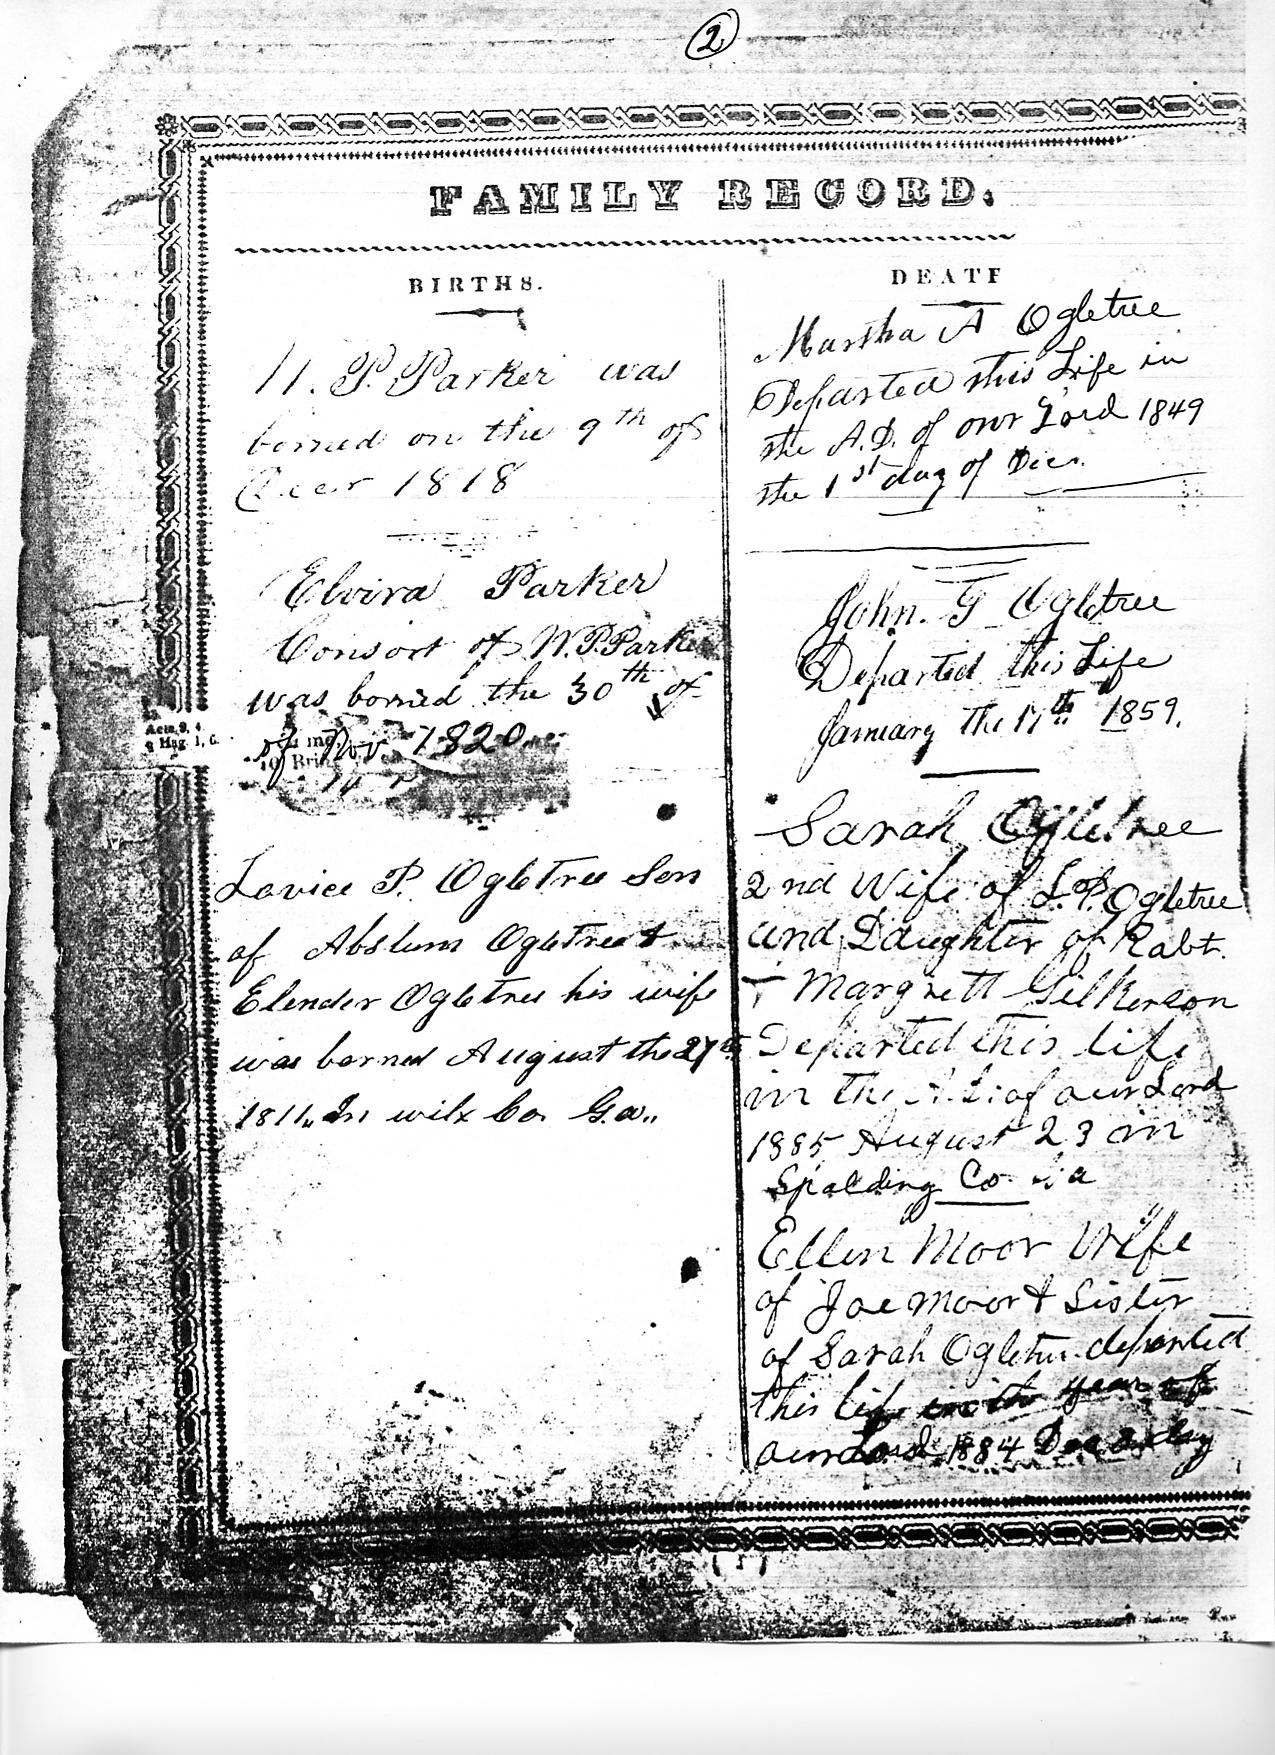 2
FAMILY RECORD.
BIRTHS.
W. P. Parker was
borned on the 9th of
Decr 1818
Elvira Parker
Consort of W. P. Parker
was borned the 30th of
of Nov. 1820
Acts, 9, 4
Hag. 1, 6.
Lovice P. Ogletree Son
of Abslum Ogletree &
Elender Ogletree his wife
was borned August the 27th
1811. In wilx Co. Ga.
DEATH
Martha A Ogletree
Departed this Life in
the A.D. of our Lord 1849
the 1st day of Decr.
John. G Ogletree
Departed this Life
January the 17th 1859.
Sarah Ogletree
2nd Wife of L. P. Ogletree
and Daughter of Robt.
Margrett Gilkerson
Departed this life
in the A.D. of our Lord
1885 August 23 in
Spalding Co Ga
Ellen Moor Wife
of Joe Moor & Sister
of Sarah Ogletree departed
this life in the year of
our Lord 1884 Dec 2 day